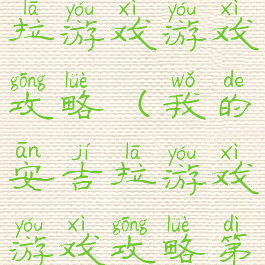 lā yóu xì yóu xì
拉游戏游戏
gōng lüè wǒ de
攻略（我的
ān jí lā yóu xì
安吉拉游戏
yóu xì gōng lüè dì
游戏攻略第